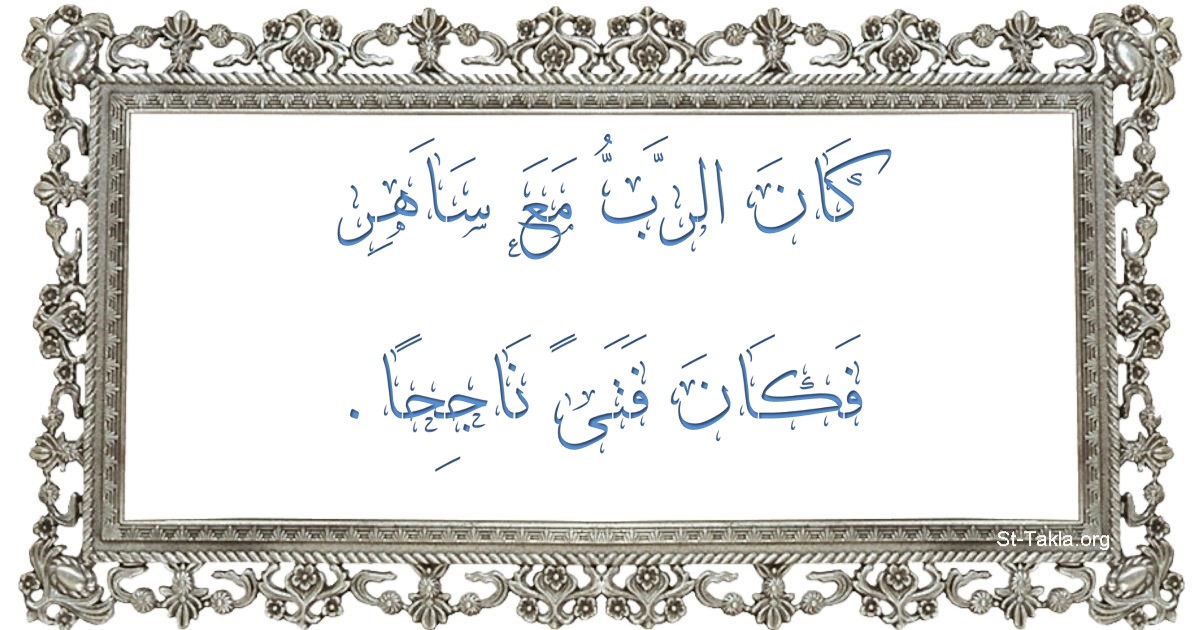 كَانَ الرَّبُّ مَعَ سَاَهِرِ
فَكَانَ فَتَىً نَاجِحًا .
St-Takla.org